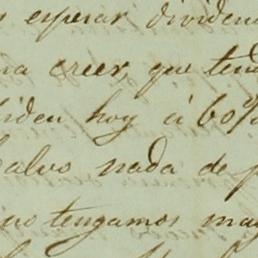 esperar dividen
creer, que ten
hoy á 60%
alvo nada de
no tengamos ma